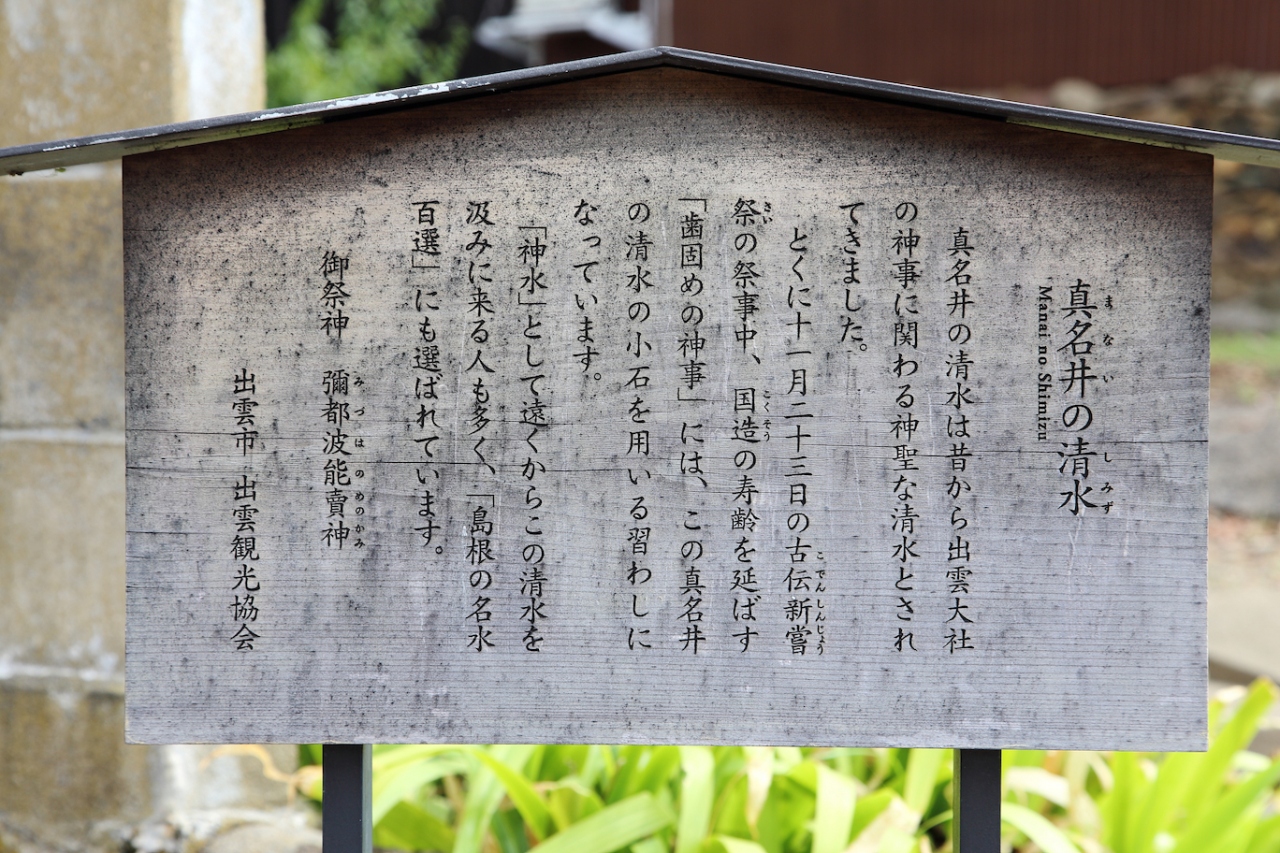 真名井の清水
まないしみず
Manai no Shimizu
真名井の清水は昔から出雲大社
の神事に関わる神聖な清水とされ
てきました。
とくに十一月二十三日の古伝新嘗
こでんしんじょう
祭の祭事中、国造の寿齢を延ばす
さい
こくそう
「歯固めの神事」には、この真名井
の清水の小石を用いる習わしに
なっています。
「神水」として遠くからこの清水を
汲みに来る人も多く、「島根の名水
百選」にも選ばれています。
御祭神 彌都波能賣神
みづはのめのかみ
出雲市 出雲観光協会